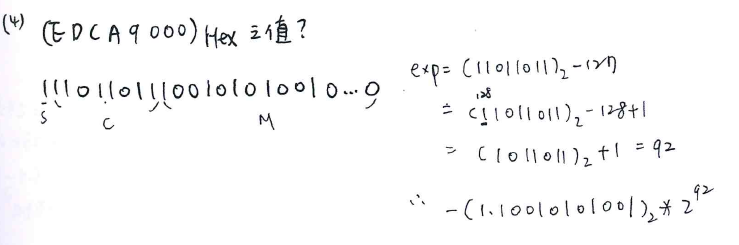 (4) (EDCA9000) Hex 之值?
1110110111001010100010...0
S C M
exp = (11011011)₂ - 127
128
= (11011011)₂ - 128 + 1
= (1011011)₂ + 1 = 92
∴ - (1.10010101001)₂ * 2⁹²